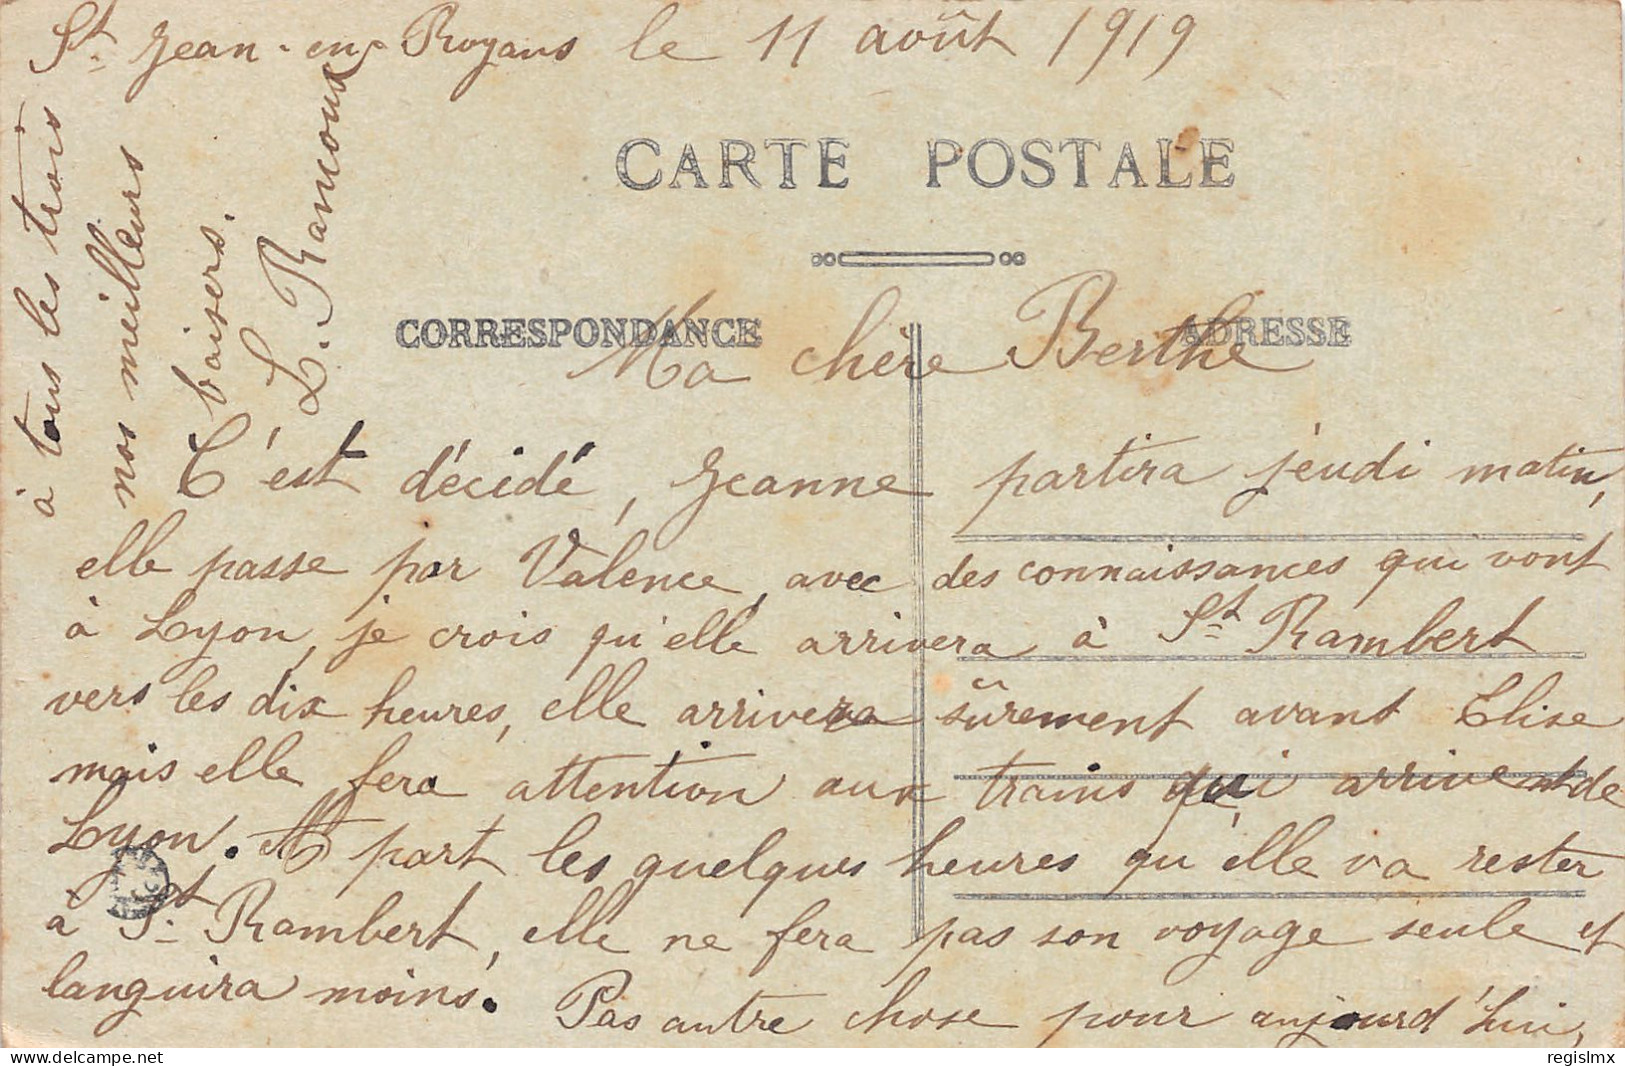 St Jean-en-Royans le 11 août 1919
CARTE POSTALE
CORRESPONDANCE
ADRESSE
Ma chère Berthe
C'est décidé, Jeanne partira jeudi matin,
elle passe par Valence, avec des connaissances qui vont
à Lyon, je crois qu'elle arrivera à St Rambert
vers les dix heures, elle arrivera sûrement avant Elise
mais elle fera attention aux trains qui arrivent de
Lyon. A part les quelques heures qu'elle va rester
à St Rambert, elle ne fera pas son voyage seule et
languira moins. Pas autre chose pour aujourd'hui,
à tous les trois
nos meilleurs
baisers.
L. Rancoux
www.delcampe.net
regislmx